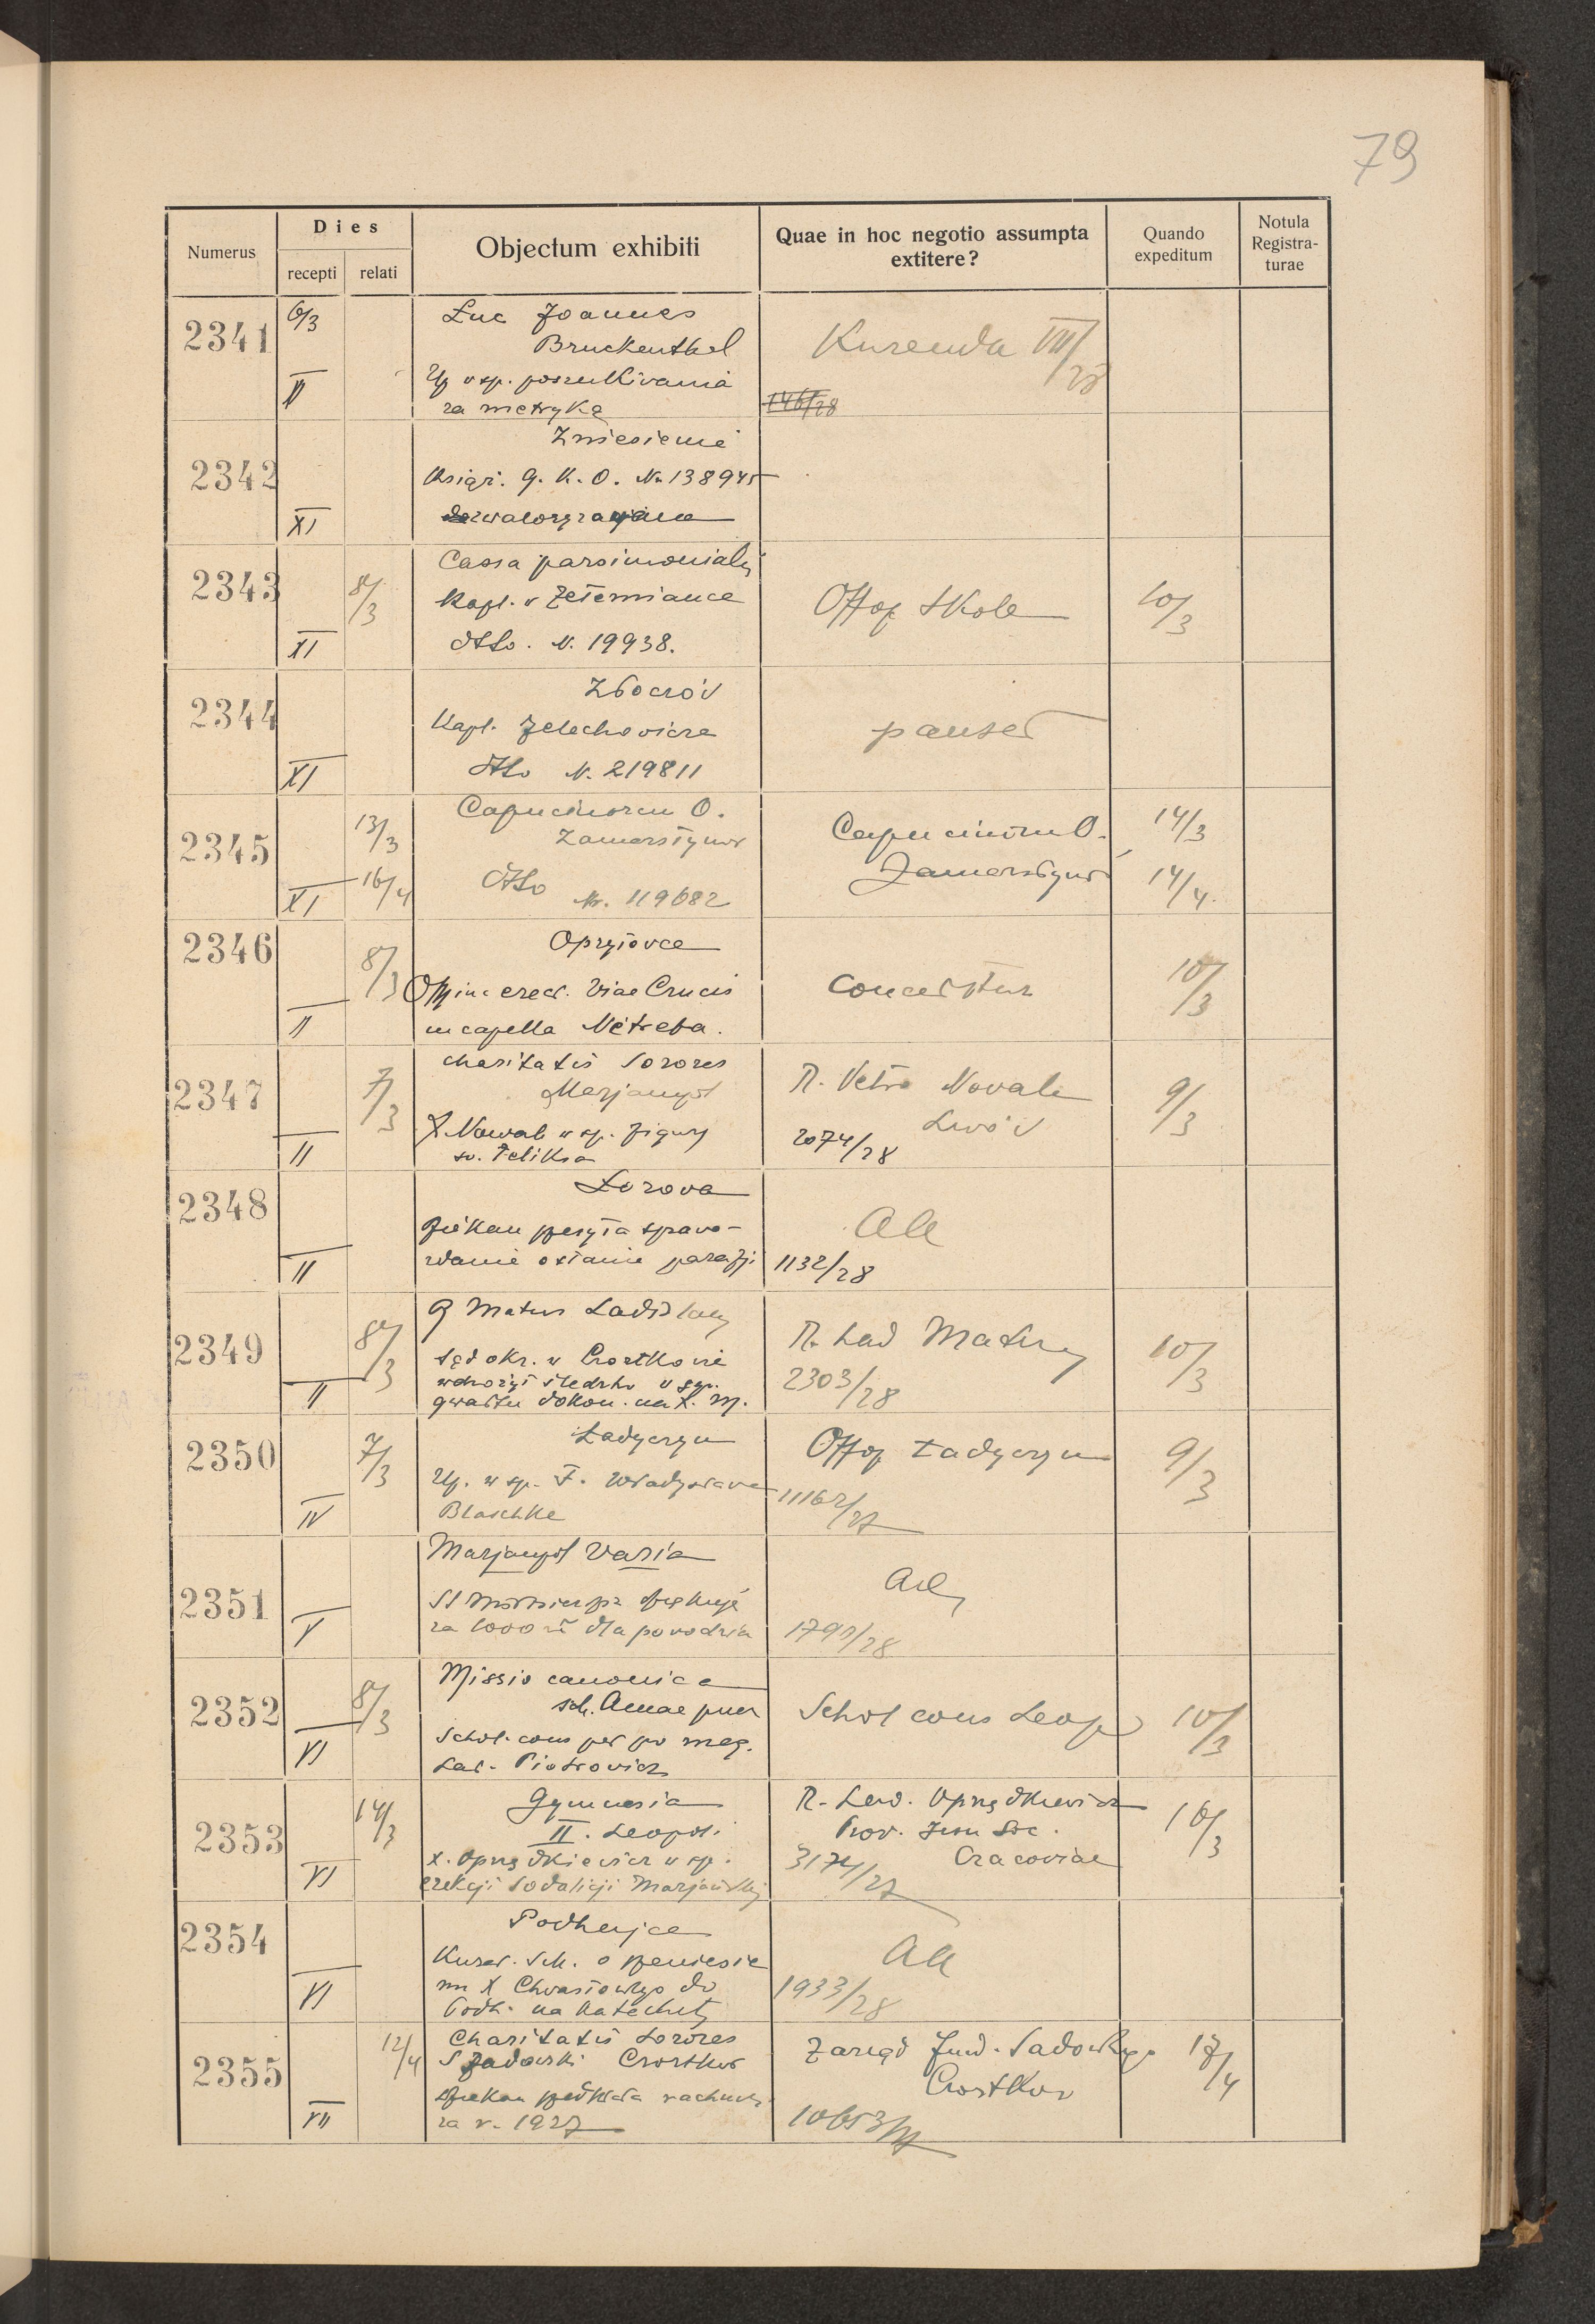 79
Numerus
Dies
recepti
relati
Objectum exhibiti
Quae in hoc negotio assumpta
extitere?
Quando
expeditum
Notula
Registra-
turae
2341
6/3
II
Luc Joannes
Bruckenthal
w sp. poszukivania
za metryką
Kurenda VII/28
146/28
2342
XI
Zniesienie
Książ. G. K. O. No 138945
2343
8/3
XI
Cassa parsimonialis
Kapl. v
Nr. 19938.
Offop Skole
10/3
2344
XI
Zborów
Kapl. Zelechovicze
N. 219811
2345
13/3
16/4
XI
Capucinorum O.
Zamarstynów
Nr. 119682
Capucinorum O.
Zamarstynów
14/3
14/4
2346
8/3
II
Opryłovce
Offin. erect. Viae Crucis
in capella Netreba.
conceditur
10/3
2347
7/3
II
Charitatis Sorores
Marjampol
X. Nowak w sp. figury
św. Feliksa
R. Petro Novak
Lwów
2074/28
9/3
2348
II
Łozova
Dziekan przesyła spravo-
zdanie o stanie parafji
Ad a
1132/28
2349
8/3
II
R Matus Ladislaus
Sąd okr. w Czortkovie
wdrożył śledztwo v sp.
gwałtu dokon. na X. M.
R. Lad Matus
2303/28
10/3
2350
7/3
IV
Ładyczyn
w sp. F. Władysława
Blaschke
Offop Ładyczyn
11162/27
9/3
2351
V
Marjampol Varia
za 1000 zł dla povodzian
Ad a
1791/28
2352
8/3
VI
Missio canonica
sch. Annae puer
Schol. cons per pro mag.
Lad. Piotrovicz
Schol cons Leop
10/3
2353
14/3
VI
Gymnasia
II. Leopol.
X. Oprządkiewicz w sp.
erekcji Sodalicji Marjańskiej
R. Lud. Oprządkiewicz
Prov. Jesu Soc.
Cracoviae
3174/27
16/3
2354
VI
Podhajce
Kurat. Sch. o przeniesie
nu X Chvastowskiego do
Podh. na katechetę
Ad a
1933/28
2355
12/4
VII
Charitatis Sorores
S Zadowski Czortków
Dziekan przedkłada rachunki
za r. 1927
Zarząd Fund. Sadowskiego
Czortków
10653/27
17/4